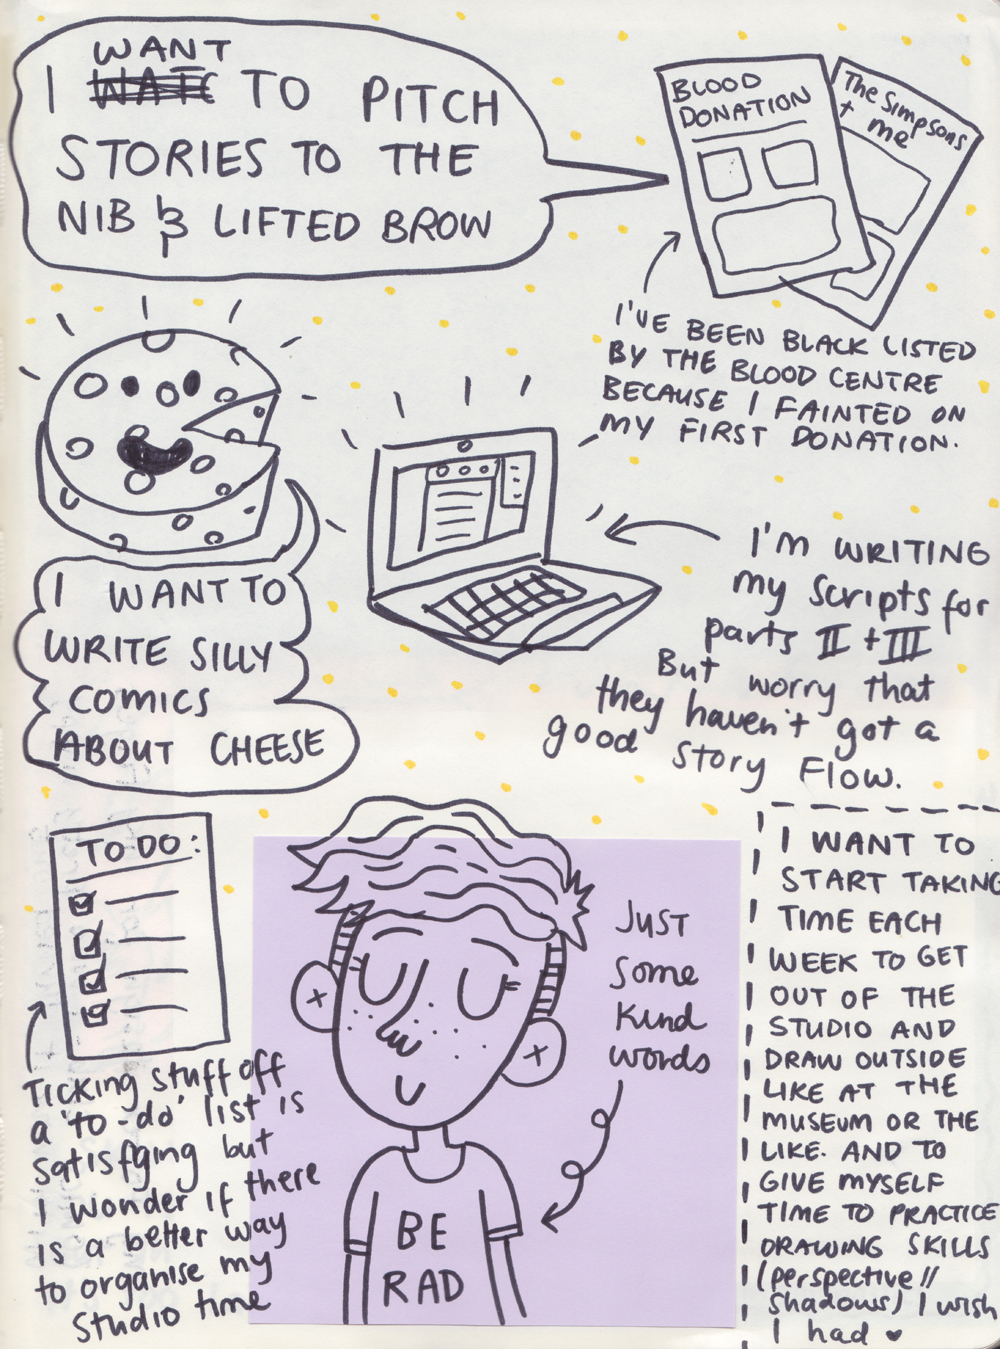 WANT
I WATC TO PITCH
STORIES TO THE
NIB & LIFTED BROW
BLOOD
DONATION
The Simpsons
+ me
I'VE BEEN BLACK LISTED
BY THE BLOOD CENTRE
BECAUSE I FAINTED ON
MY FIRST DONATION.
I WANT TO
WRITE SILLY
COMICS
ABOUT CHEESE
I'M WRITING
my scripts for
parts II + III
But worry that
they haven't got a
good story Flow.
TO DO:
TICKING stuff off
a 'to-do' list is
satisfying but
I wonder if there
is a better way
to organise my
studio time
JUST
some
kind
words
BE
RAD
I WANT TO
START TAKING
TIME EACH
WEEK TO GET
OUT OF THE
STUDIO AND
DRAW OUTSIDE
LIKE AT THE
MUSEUM OR THE
LIKE. AND TO
GIVE MYSELF
TIME TO PRACTICE
DRAWING SKILLS
(perspective //
shadows) I wish
I had ♥